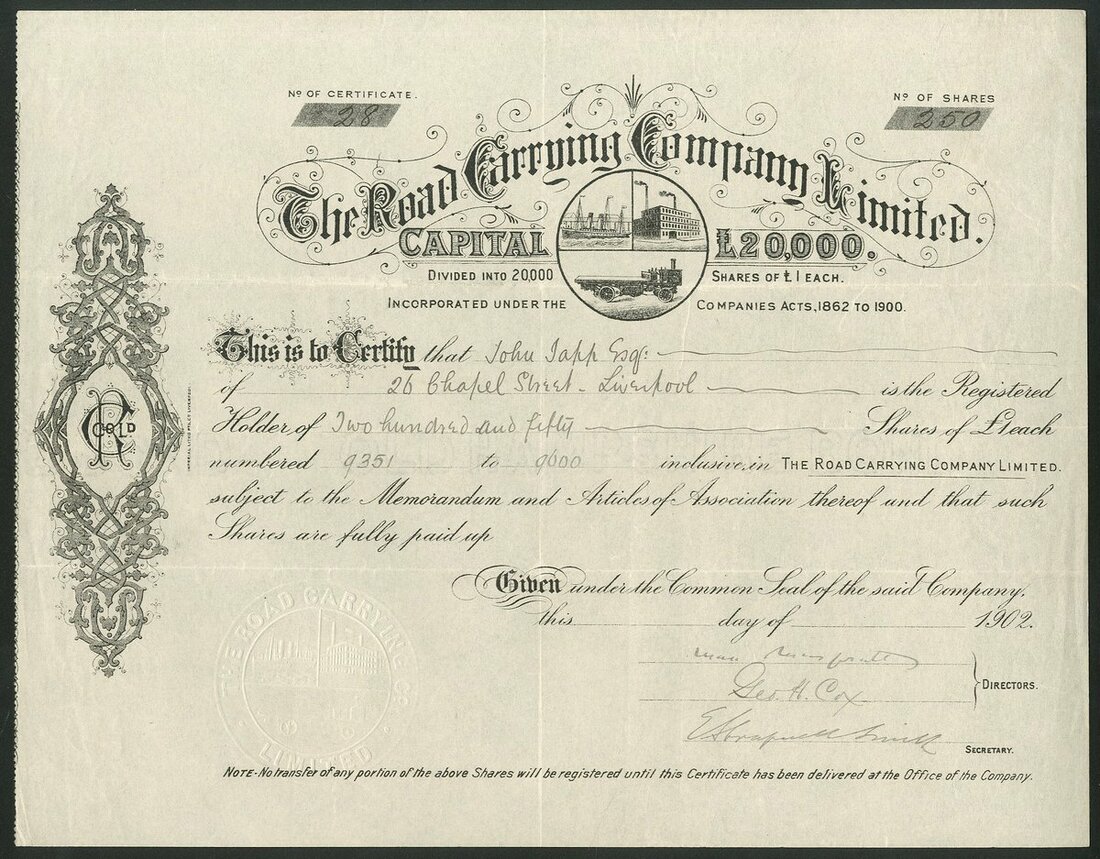 Nº OF CERTIFICATE.
28
Nº OF SHARES
250
The Road Carrying Company Limited.
CAPITAL £20,000.
DIVIDED INTO 20,000 SHARES OF £1 EACH.
INCORPORATED UNDER THE COMPANIES ACTS, 1862 TO 1900.
This is to Certify that John Japp Esqr.
of 26 Chapel Street - Liverpool is the Registered
Holder of Two hundred and fifty Shares of £1 each
numbered 9351 to 9600 inclusive, in THE ROAD CARRYING COMPANY LIMITED.
subject to the Memorandum and Articles of Association thereof and that such
Shares are fully paid up
Given under the Common Seal of the said Company,
this day of 1902.
Geo. H. Cox
DIRECTORS.
SECRETARY.
NOTE - No transfer of any portion of the above Shares will be registered until this Certificate has been delivered at the Office of the Company.
RC Co LD
THE ROAD CARRYING Co LIMITED